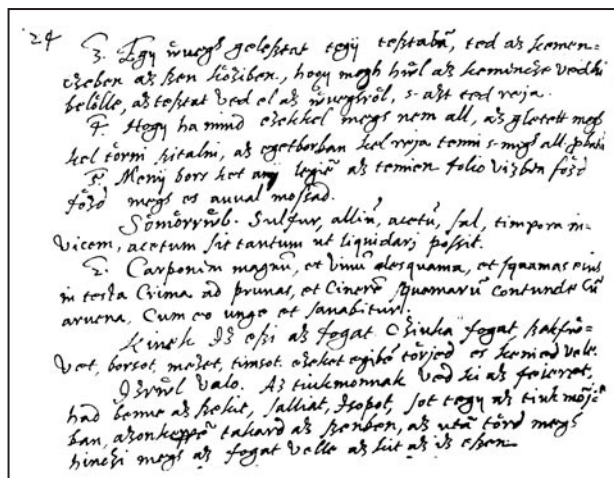 24
3. Egÿ w̋uegh geleßtat tegÿ teßtabã, ted aß kemen-
cßeben aß ßen kößiben, hogy megh hw̋l aß kemincße vedhi
belölle, aß teßtat ved el aß w̋uegröl, s-aßt ted reja.
4. Hogy ha mind eßekkel megh nem all, aß gletett megh
kel törni ßitalni, aß egetborban kel reja tenni s-migh all
3. Menÿ borr ket legiẽ aß temien folio vizben főzd
főzd megh es auual moßßad.
Sömörrw̋l. Sulfur, alliũ, acetũ, sal, timpora in-
vicem, acetum sit tantum ut liquidari possit.
2. Carponim magnũ, et vinũ desquama, et squamas eius
in testa Crima ad prunas, et Cinerẽ squamarũ contunde cũ
aruena, Cum eo unge et sanabitur.
Kinek Iß eßi aß fogat. Cßiuka fogat, ßakfw̋-
vet, borsot, meßet, timsot, eßeket egibẽ törjed es kenied vele.
Ißrw̋l valo. Aß tiukmonnak ved ki aß feieret,
had benne aß ßekit, salliat, Isopot, sot tegÿ aß tiukmõÿ-
ban, aßonkeppẽ takard aß ßenben, aß utã törd megh
hincßi megh aß fogat velle aß kit aß iß eßen